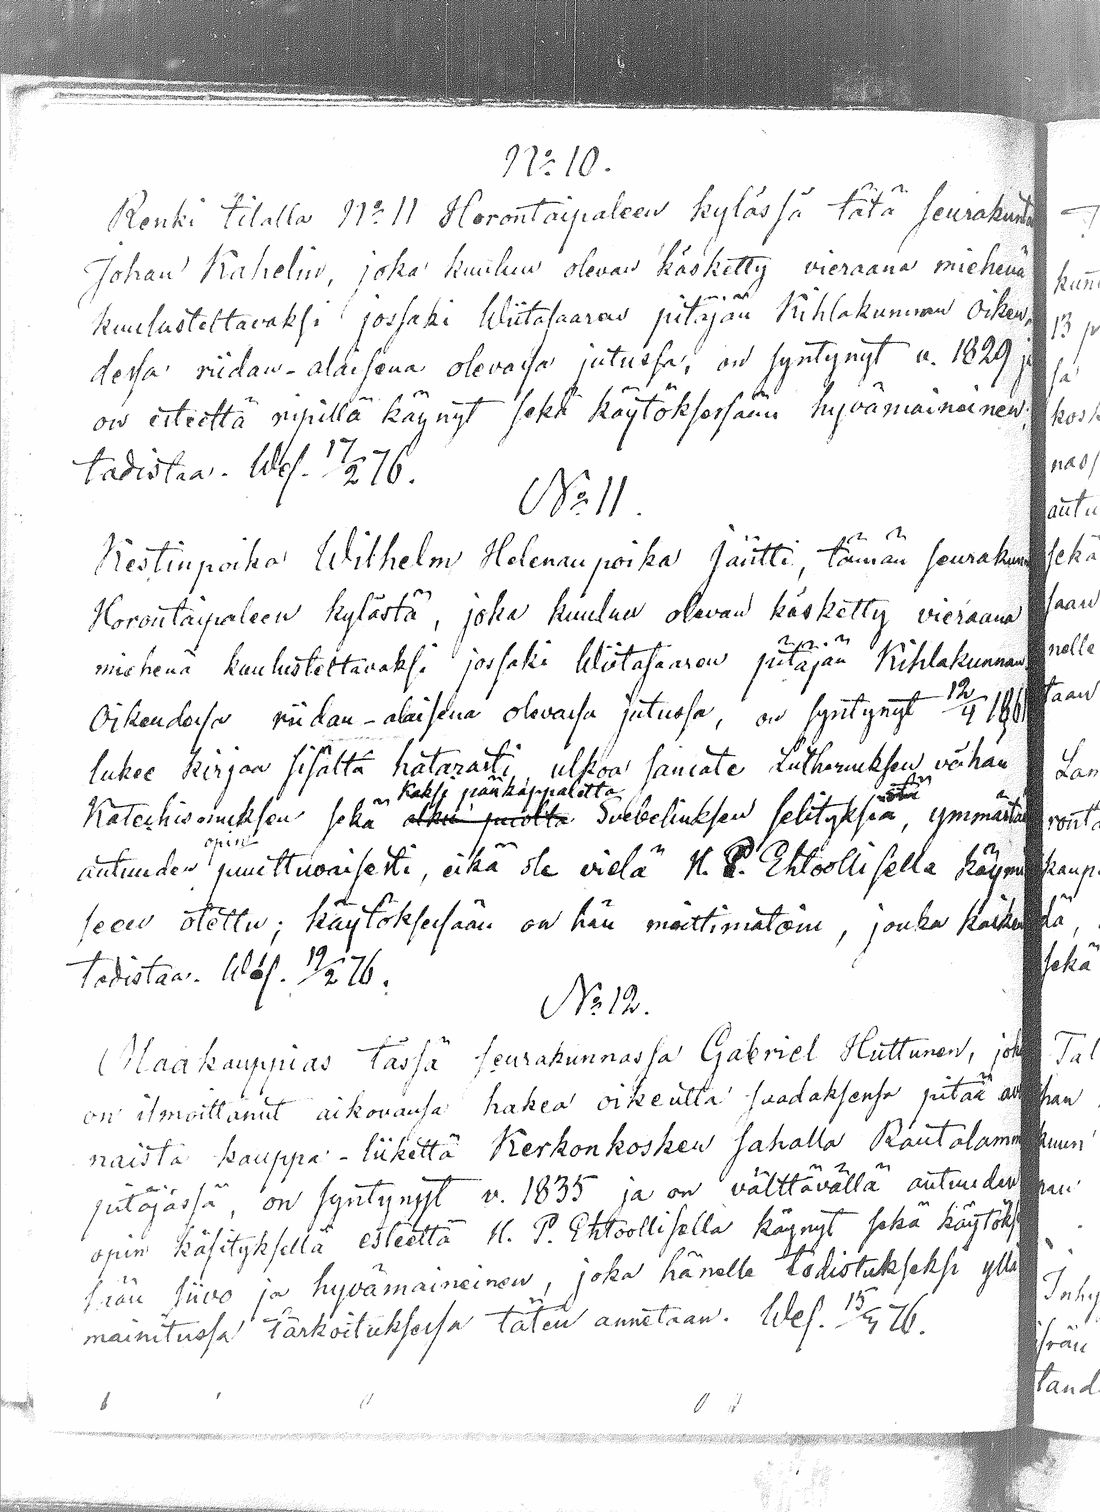 No 10.
Renki tilalla No 11 Horontaipaleen kylässä tätä seurakunta
Johan Kahelin, joka kuuluu olevan käsketty vieraana miehenä
kuulusteltavaksi jossaki Wiitasaaren pitäjän Kihlakunnan Oikeu-
dessa riidan-alaisena olevassa jutussa, on syntynyt v. 1829 ja
on esteettä ripillä käynyt sekä käytöksessään hyvämaineinen;
todistaa. Wes. 17/2 76.
No 11.
Kestinpoika Wilhelm Helenanpoika Jäntti, tämän seurakunn
Horontaipaleen kylästä, joka kuuluu olevan käsketty vieraana
miehenä kuulusteltavaksi jossaki Wiitasaaren pitäjän Kihlakunnan
Oikeudessa riidan-alaisena olevassa jutussa, on syntynyt 12/4 1861
lukee kirjaa sisältä hatarasti, ulkoa saneate Lutheruksen vähän
Kaksi pääkappaletta
Katechismuksen sekä alku puolta Svebeliuksen selityksiä, ymmärtää
opin
autuuden puuttuvaisesti, eikä ole vielä H. P. Ehtoollisella käymi
seen otettu; käytöksessään on hän moittimatoin, jonka kaiken
todistaa. Wes. 19/2 76.
No 12.
Maakauppias tässä seurakunnassa Gabriel Huttunen, joka
on ilmoittanut aikovansa hakea oikeutta saadaksensa pitää avo
naista kauppa-liikettä Kerkonkosken sahalla Rautalammin
pitäjässä, on syntynyt v. 1835 ja on välttävällä autuuden
opin käsityksellä esteettä H. P. Ehtoollisella käynyt sekä käytökse
ssään siivo ja hyvämaineinen, joka hänelle todistukseksi yllä
mainitussa tarkoituksessa täten annetaan. Wes. 15/3 76.